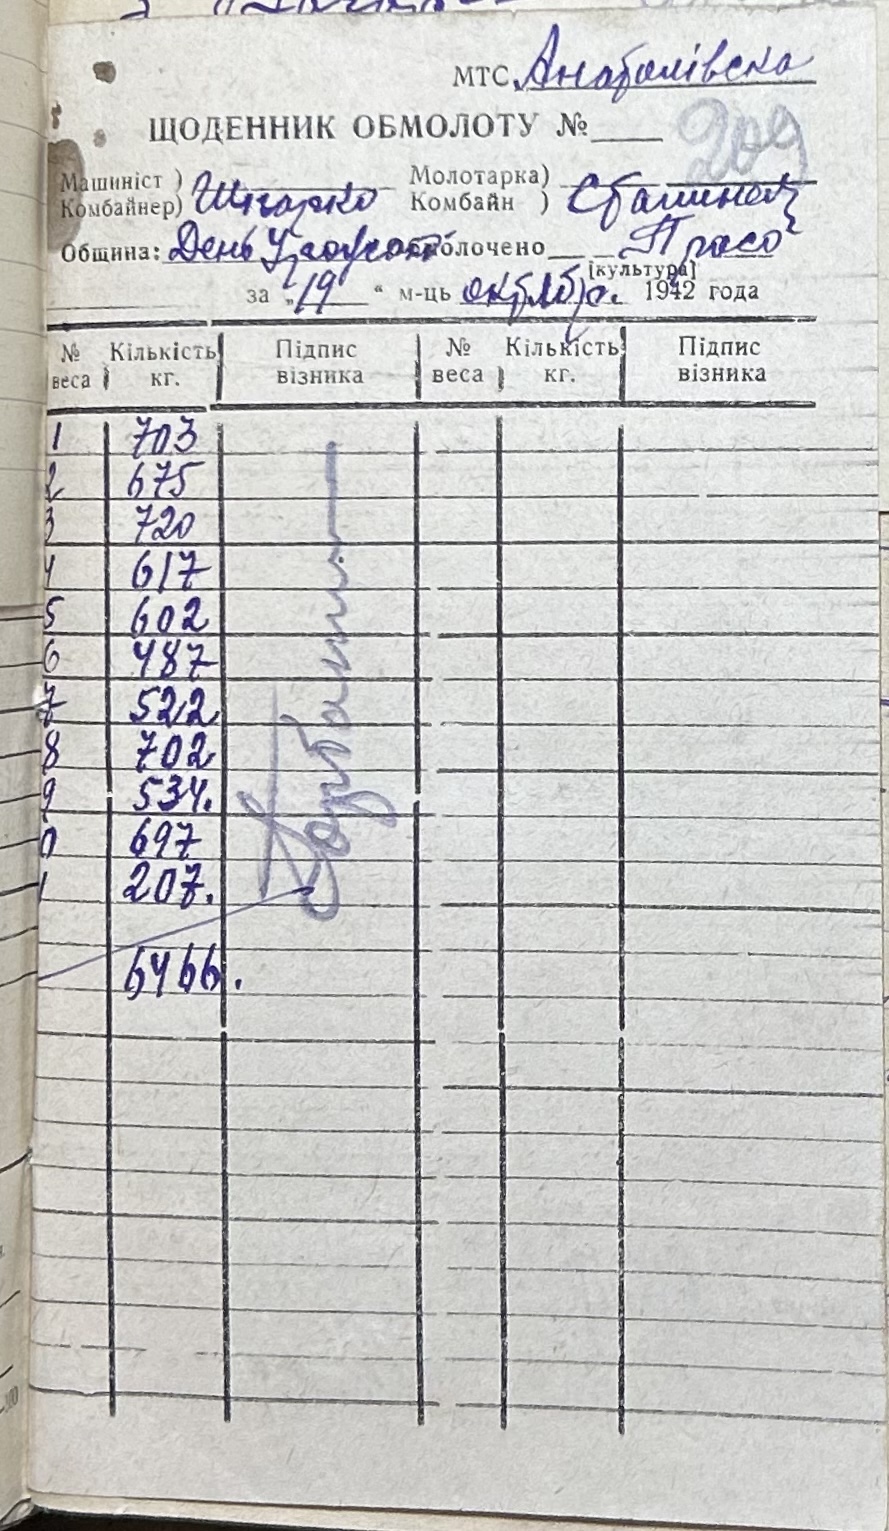 МТС Анатолівска
ЩОДЕННИК ОБМОЛОТУ №
209
Машиніст ) Молотарка)
Комбайнер) Шпарко Комбайн )
Община: День Урожая Обмолочено Просо
[культура]
за „19“ м-ць октября 1942 года
№ Кількість Підпис № Кількість Підпис
веса кг. візника веса кг. візника
1 703
2 675
3 720
4 617
5 602
6 487
7 522
8 702
9 534.
0 697
1 207.
6466.